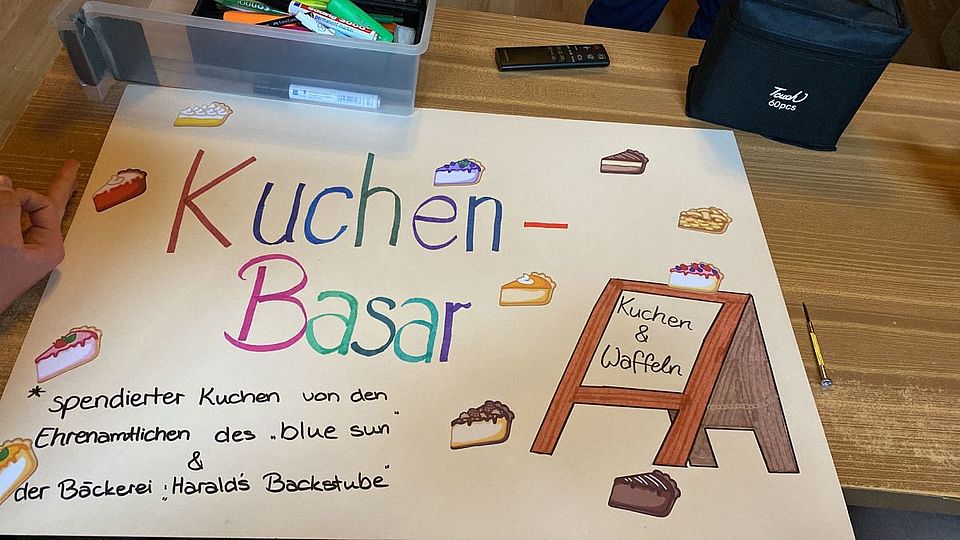 Touch
60pcs
Kuchen-
Basar
Kuchen
&
Waffeln
* spendierter Kuchen von den
Ehrenamtlichen des „blue sun"
&
der Bäckerei „Harald's Backstube"